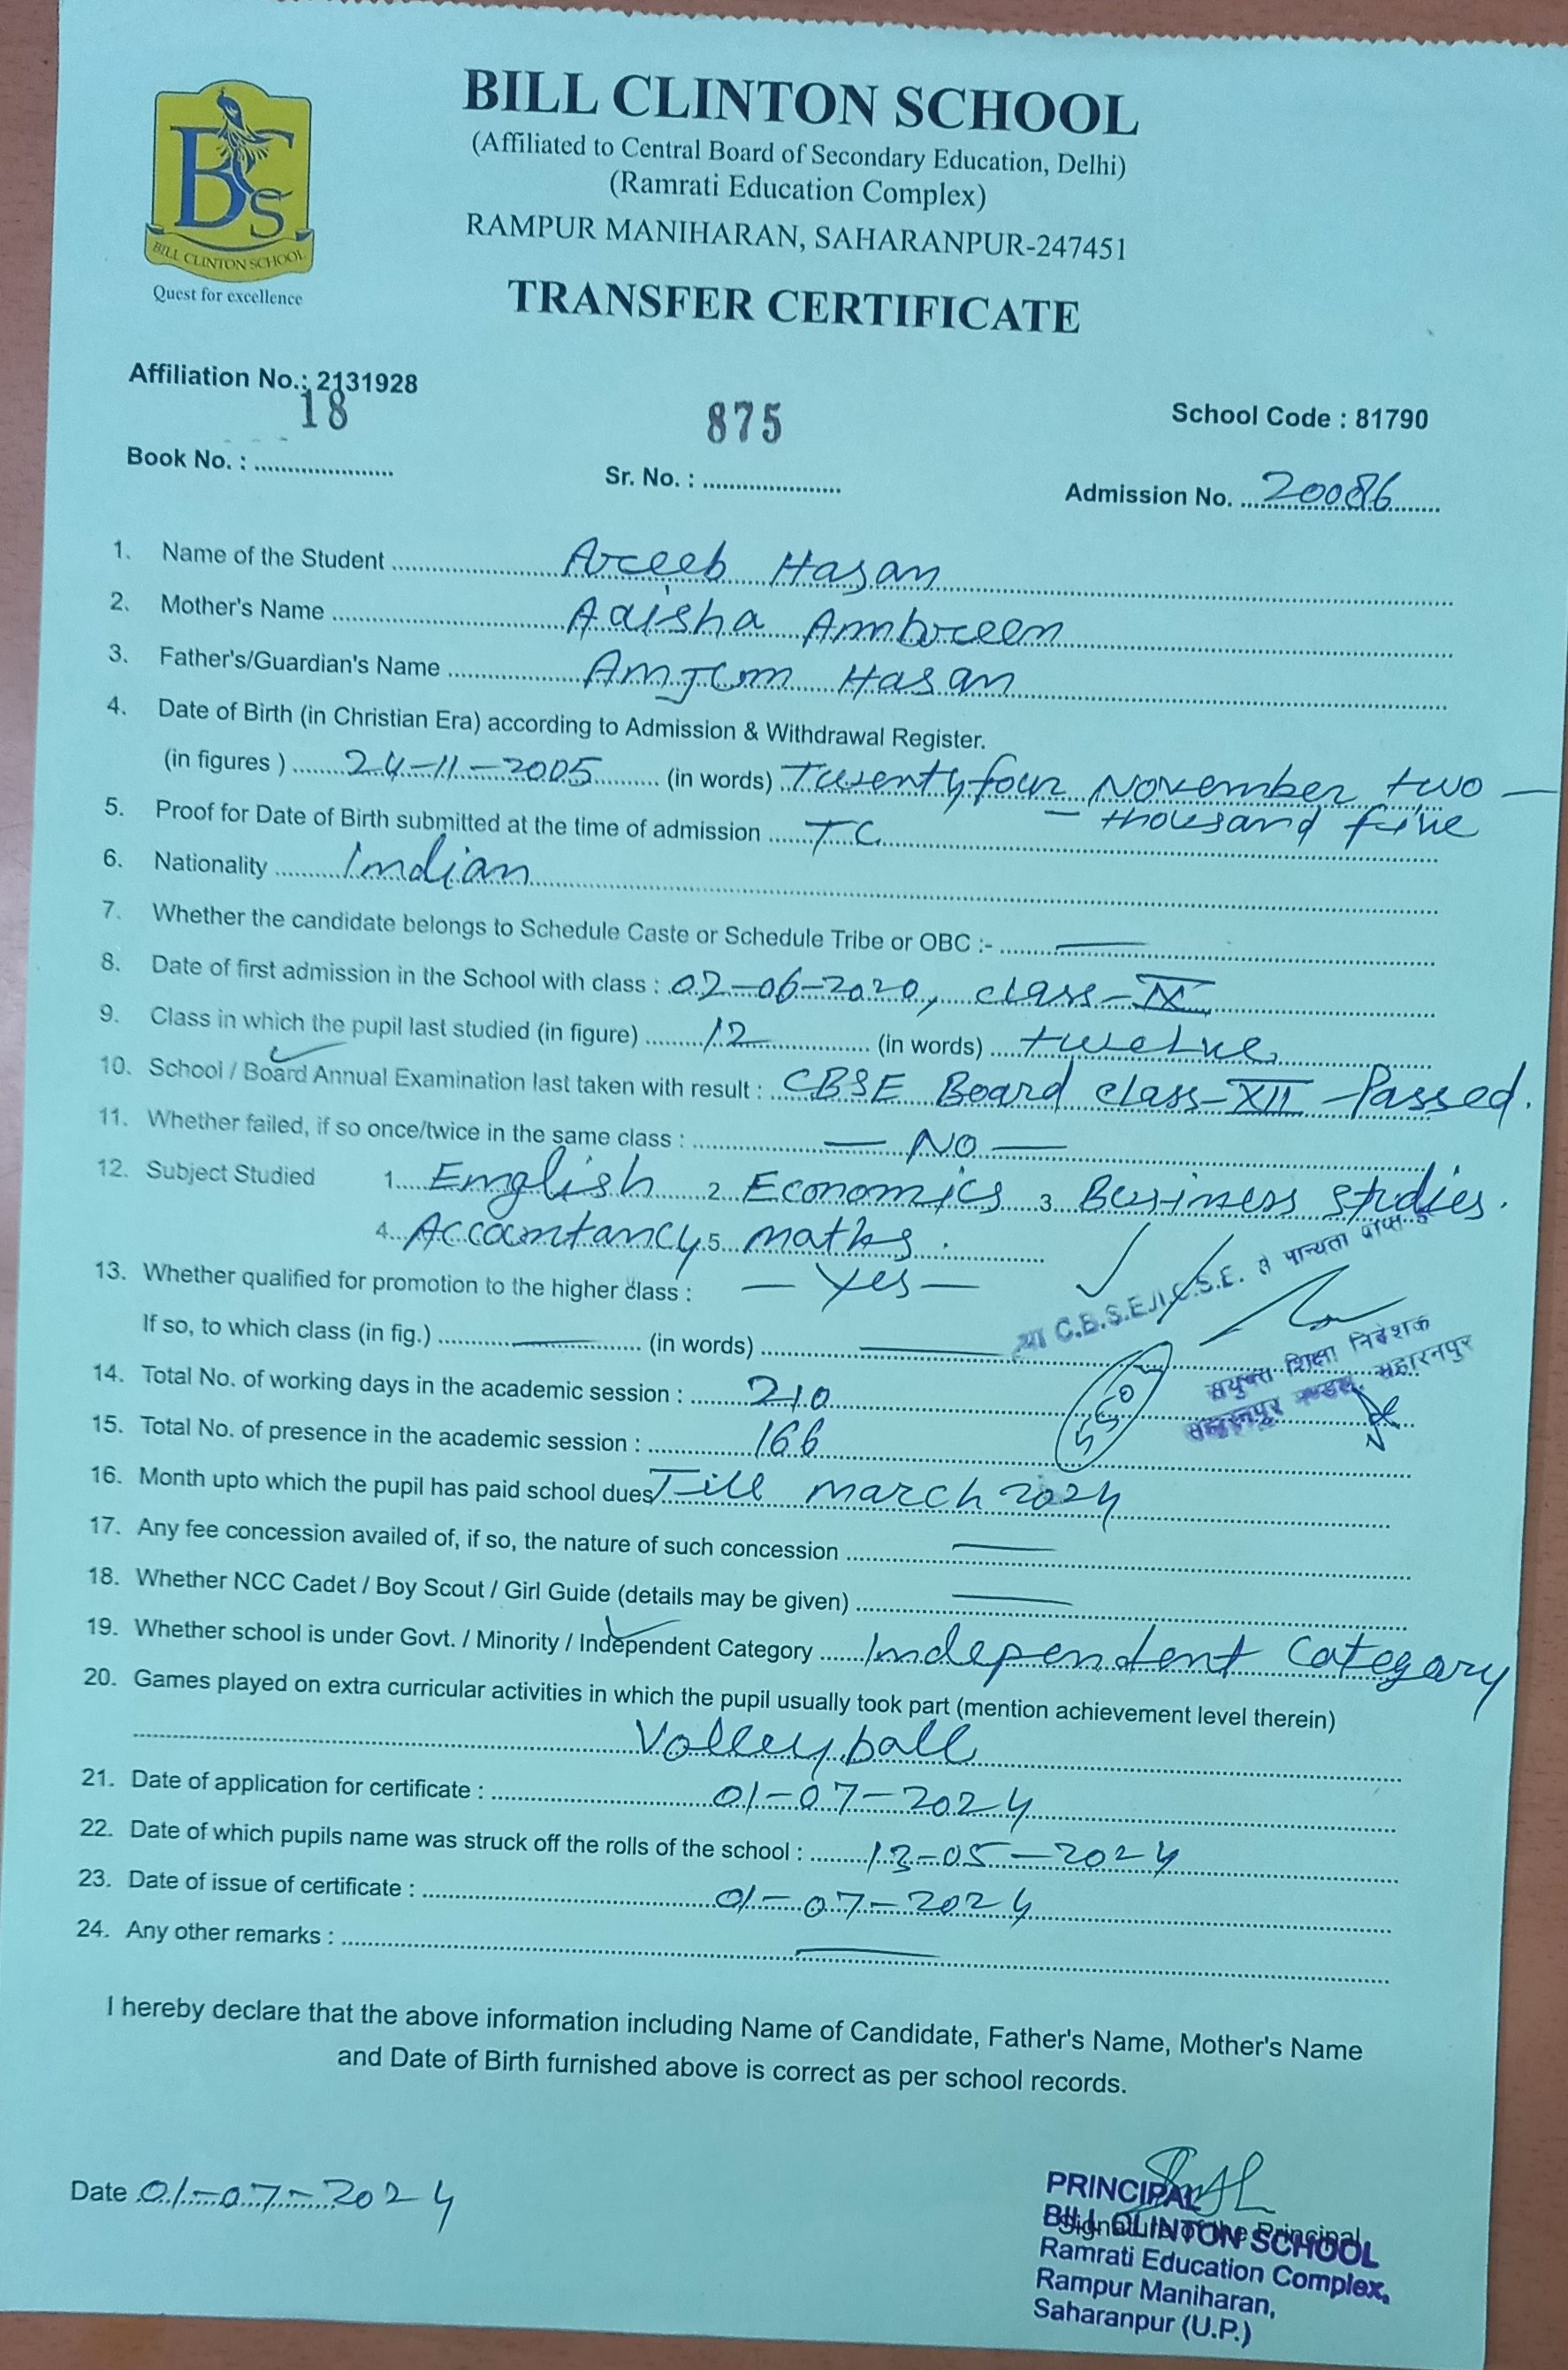 BILL CLINTON SCHOOL
(Affiliated to Central Board of Secondary Education, Delhi)
(Ramrati Education Complex)
RAMPUR MANIHARAN, SAHARANPUR-247451
BCS
BILL CLINTON SCHOOL
Quest for excellence
TRANSFER CERTIFICATE
Affiliation No.: 2131928
School Code : 81790
Book No. : 18 Sr. No. : 875 Admission No. 20086
1. Name of the Student Areeb Hasan
2. Mother's Name Aaisha Ambreen
3. Father's/Guardian's Name Amjum Hasan
4. Date of Birth (in Christian Era) according to Admission & Withdrawal Register.
(in figures ) 24-11-2005 (in words) Twenty four November two —
— thousand five
5. Proof for Date of Birth submitted at the time of admission T.C.
6. Nationality Indian
7. Whether the candidate belongs to Schedule Caste or Schedule Tribe or OBC :- —
8. Date of first admission in the School with class : 02-06-2020, class-IX
9. Class in which the pupil last studied (in figure) 12 (in words) twelve
10. School / Board Annual Examination last taken with result : CBSE Board class-XII - Passed.
11. Whether failed, if so once/twice in the same class : — NO —
12. Subject Studied 1. English 2. Economics 3. Business studies.
4. Accountancy 5. maths.
13. Whether qualified for promotion to the higher class : — Yes —
C.B.S.E./I.C.S.E. से मान्यता प्राप्त है
If so, to which class (in fig.) — (in words) —
संयुक्त शिक्षा निदेशक
सहारनपुर मण्डल, सहारनपुर
14. Total No. of working days in the academic session : 210
15. Total No. of presence in the academic session : 166
16. Month upto which the pupil has paid school dues Till march 2024
17. Any fee concession availed of, if so, the nature of such concession —
18. Whether NCC Cadet / Boy Scout / Girl Guide (details may be given) —
19. Whether school is under Govt. / Minority / Independent Category Independent Category
20. Games played on extra curricular activities in which the pupil usually took part (mention achievement level therein)
Volleyball
21. Date of application for certificate : 01-07-2024
22. Date of which pupils name was struck off the rolls of the school : 13-05-2024
23. Date of issue of certificate : 01-07-2024
24. Any other remarks : —
I hereby declare that the above information including Name of Candidate, Father's Name, Mother's Name
and Date of Birth furnished above is correct as per school records.
Date 01-07-2024
Signature of the Principal
PRINCIPAL
BILL CLINTON SCHOOL
Ramrati Education Complex,
Rampur Maniharan,
Saharanpur (U.P.)